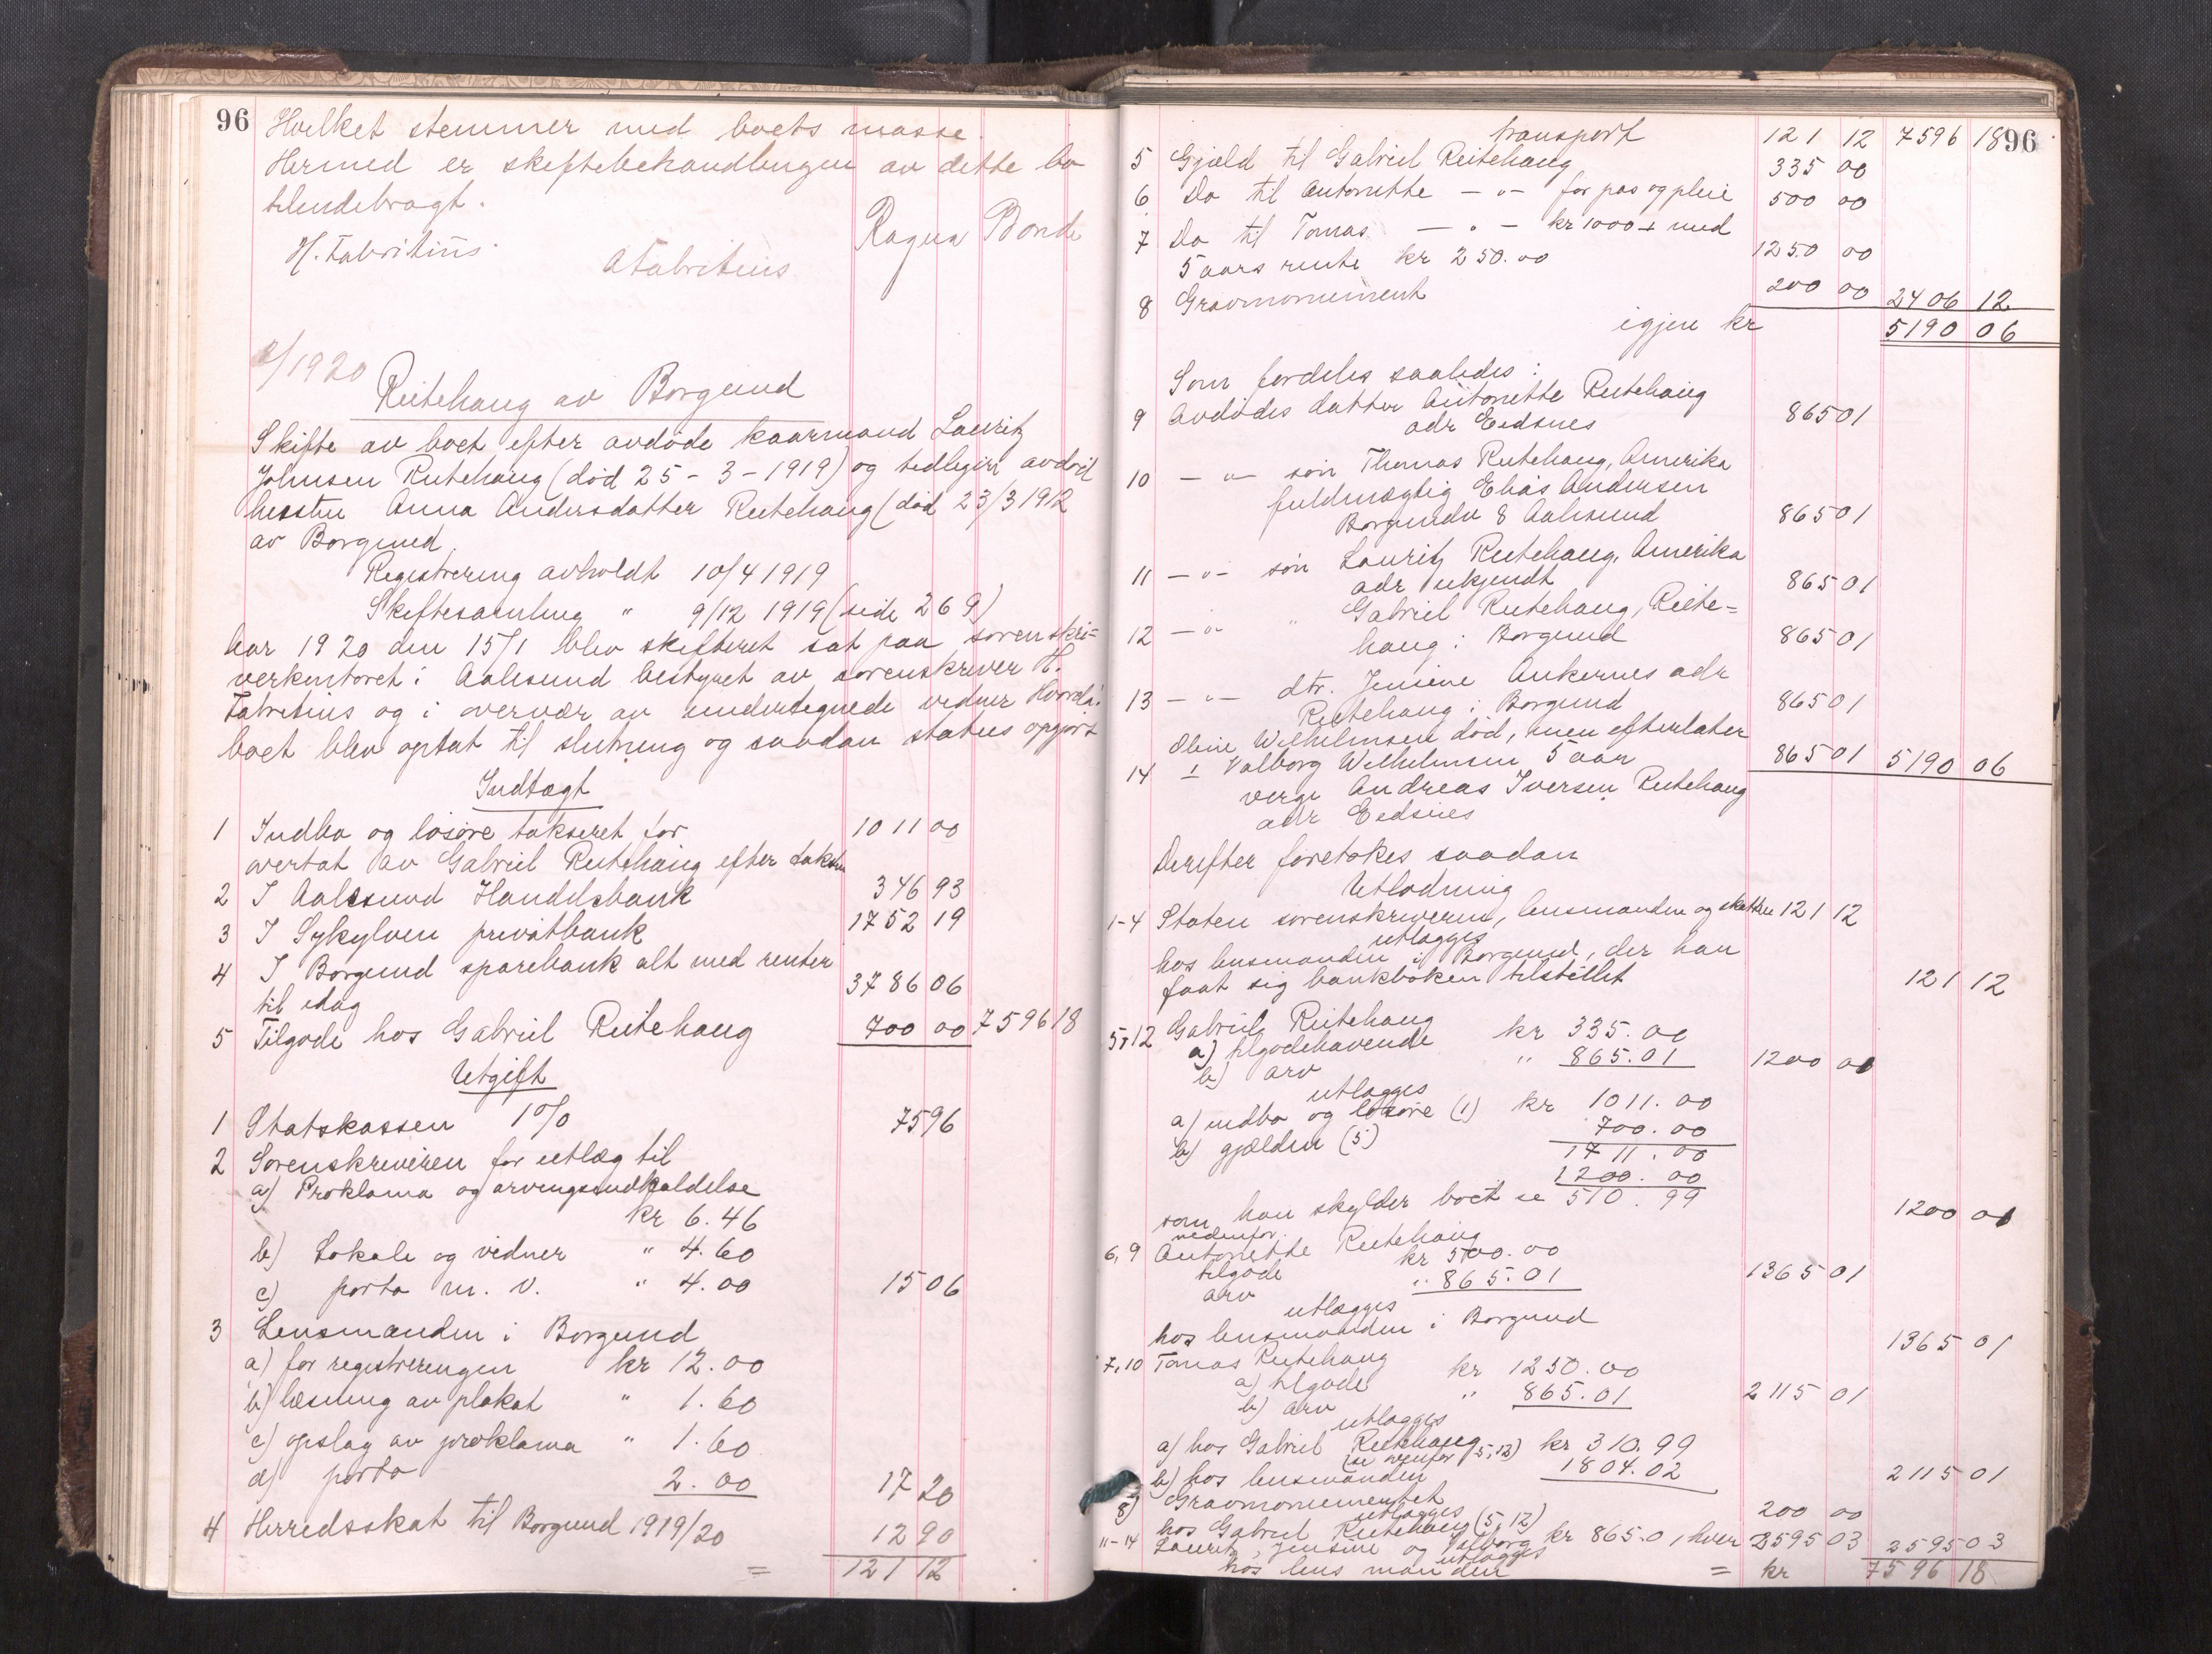 96
Hvilket stemmer med boets masse.
Hermed er skiftebehandlingen av dette bo
tilendebragt.
H. Fabritius.
AFabritius
Ragna Bonde
/1920
Reitehaug av Borgund
Skifte av boet efter avdøde kaarmand Lauritz
Johnsen Reitehaug (død 25 - 3 - 1919) og tidligere avdød
hustru Anna Andersdatter Reitehaug (død 23/3 1912
av Borgund
Registrering avholdt 10/4 1919
Skiftesamling " 9/12 1919 (side 269)
Aar 1920 den 15/1 blev skifteret sat paa sorenskri=
verkontoret i Aalesund bestyret av sorenskriver H.
Fabritius og i overvær av undertegnede vidner. Hvorda:
boet blev optat til slutning og saadan status opgjort
Indtægt
1 Indbo og løsøre takseret for 1011 00
overtat av Gabriel Reitehaug efter takstn
2 I Aalesund Handelsbank 346 93
3 I Sykylven privatbank 1752 19
4 I Borgund sparebank alt med renter
til idag 3786 06
5 Tilgode hos Gabriel Reitehaug 700 00 7596 18
Utgift
1 Statskassen 1% 75 96
2 Sorenskriveren for utlæg til
a) Proklama og arvingsindkaldelse
kr 6.46
b) Lokale og vidner " 4.60
c) porto m. v. " 4.00 15 06
3 Lensmanden i Borgund
a) for registreringen kr 12.00
b) læsning av plakat " 1.60
c) opslag av proklama " 1.60
d) porto 2.00 17 20
4 Herredsskat til Borgund 1919/20 12 90
= 121 12
transport 121 12 7596 18 96
5 Gjæld til Gabriel Reitehaug 335 00
6 Do til Antonette - " - for pas og pleie 500 00
7 Do til Tomas - " - kr 1000 + med
5 aars rente kr 250.00 1250 00
8 Gravmonument 200 00 2406 12
igjen kr 5190 06
Som fordeles saaledes:
9 Avdødes datter Antonette Reitehaug
adr Eidsnes 865 01
10 - " - søn Thomas Reitehaug, Amerika
fuldmægtig Elias Andersen
Borgundv 8 Aalesund 865 01
11 - " - søn Lauritz Reitehaug, Amerika
adr ukjendt 865 01
12 - " - " Gabriel Reitehaug, Reite=
haug i Borgund 865 01
13 - " - dtr. Jensine Ankernes adr
Reitehaug i Borgund 865 01
Oline Wilhelmsen død, men efterlater
14 1 Valborg Wilhelmsen 5 aar 865 01 5190 06
verge Andreas Iversen Reitehaug
adr Eidsnes
Derefter foretokes saadan
Utlodning
1-4 Staten sorenskriveren, lensmanden og skatten 121 12
utlægges
hos lensmanden i Borgund, der han
faat sig bankboken tilstillet 121 12
5,12 Gabriel Reitehaug
a) tilgodehavende kr 335.00
b) arv " 865.01 1200 01
utlægges
a) indbo og løsøre (1) kr 1011.00
b) gjælden (5) 700.00
1711.00
1200.00
som han skylder boet se 510.99 1200 01
nedenfor.
6,9 Antonette Reitehaug
tilgode kr 500.00
arv " 865.01 1365 01
utlægges
hos lensmanden i Borgund 1365 01
7,10 Tomas Reitehaug
a) tilgode kr 1250.00
b) arv " 865.01 2115 01
utlægges
a) hos Gabriel Reitehaug kr 310.99
(se ovenfor 5,12)
b) hos lensmanden 1804.02 2115 01
8) Gravmonumentet 200 00
utlægges
hos Gabriel Reitehaug (5,12)
11-14 Lauritz, Jensine og Valborg kr 865.01 hver 2595 03 2595 03
utlægges
hos lensmanden = kr 7596 18